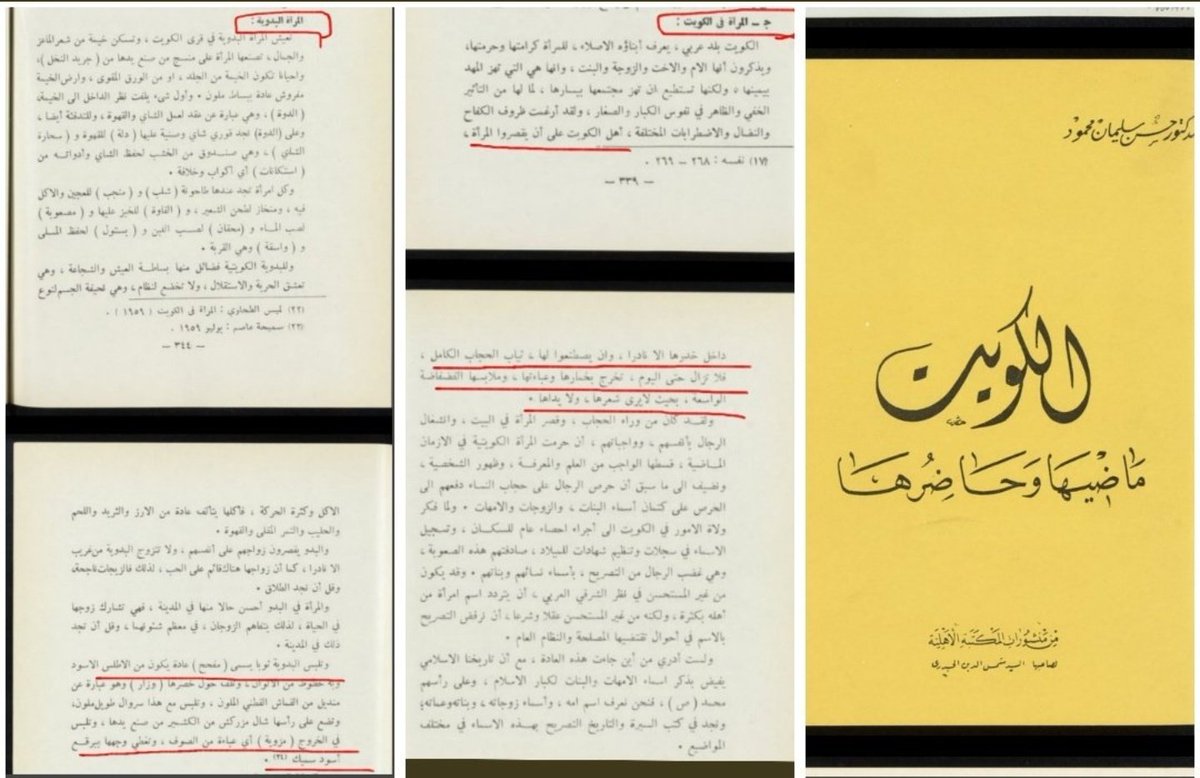 ج ـ المرأة في الكويت :
الكويت بلد عربي ، يعرف أبناؤه الاصلاء ، للمرأة كرامتها وحرمتها ،
ويذكرون أنها الام والاخت والزوجة والبنت ، وانها هي التي تهز المهد
بيمينها ، ولكنها تستطيع ان تهز مجتمعها بيسارها ، لما لها من التأثير
الخفي والظاهر في نفوس الكبار والصغار ، ولقد أرغمت ظروف الكفاح
والنضال والاضطرابات المختلفة ، أهل الكويت على أن يقصروا المرأة ،
(١٧) نفسه : ٢٦٨ – ٢٦٩ .
— ٣٣٩ —
داخل خدرها الا نادرا ، وان يصطنعوا لها ، ثياب الحجاب الكامل ،
فلا تزال حتى اليوم ، تخرج بخمارها وعباءتها ، وملابسها الفضفاضة
الواسعة ، بحيث لايرى شعرها ، ولا يداها .
ولقد كان من وراء الحجاب ، وقصر المرأة في البيت ، وانشغال
الرجال بأنفسهم ، وواجباتهم ، أن حرمت المرأة الكويتية في الازمان
الماضية ، قسطها الواجب من العلم والمعرفة ، وظهور الشخصية ،
ونضيف الى ما سبق أن حرص الرجال على حجاب النساء دفعهم الى
الحرص على كتمان أسماء البنات ، والزوجات والامهات . ولما فكر
ولاة الامور في الكويت الى أجراء احصاء عام للسكان ، وتسجيل
الاسماء في سجلات وتنظيم شهادات للميلاد ، صادفتهم هذه الصعوبة ،
وهي غضب الرجال من التصريح ، بأسماء نسائهم وبناتهم . وقد يكون
من غير المستحسن في نظر الشرقي العربي ، أن يتردد اسم امرأة من
أهله بكثرة ، ولكنه من غير المستحسن عقلا وشرعا ، أن نرفض التصريح
بالاسم في أحوال تقتضيها المصلحة والنظام العام .
ولست أدري من أين جاءت هذه العادة ، مع أن تاريخنا الاسلامي
يفيض بذكر اسماء الامهات والبنات لكبار الاسلام ، وعلى رأسهم
محمد (ص) ، فنحن نعرف اسم امه ، وأسماء زوجاته ، وبناته وعماته
ونجد في كتب السيرة والتاريخ التصريح بهذه الاسماء في مختلف
المواضيع .
المرأة البدوية :
تعيش المرأة البدوية في قرى الكويت ، وتسكن خيمة من شعر الماعز
والجمال ، تصنعها المرأة على منسج من صنع يدها من ( جريد النخل ) ،
واحيانا تكون الخيمة من الجلد ، او من الورق المقوى ، وارض الخيمة
مفروش عادة ببساط ملون . وأول شيء يلفت نظر الداخل الى الخيمة،
( الدوة ) ، وهي عبارة عن نقد لعمل الشاي والقهوة ، وللتدفئة أيضا ،
وعلى (الدوة) تجد قوري شاي وصنية عليها ( دلة ) للقهوة و ( سحارة
الشاي ) ، وهي صندوق من الخشب لحفظ الشاي وأدواته من
( استكانات ) أي أكواب وخلافه .
وكل امرأة تجد عندها طاحونة ( شلب ) و ( منجب ) للعجين والاكل
فيه ، ومنخاز لطحن الشعير ، و ( القاوة ) للخبز عليها و ( مصعوبة )
لصب الماء و (محقان) لصب اللبن و ( بستول ) لحفظ المسلى
و ( واسقة ) وهي القربة .
وللبدوية الكويتية فضائل منها بساطة العيش والشجاعة ، وهي
تعشق الحرية والاستقلال ، ولا تخضع لنظام ، وهي نحيفة الجسم لنوع
(٢٢) لميس الطحاوي : المرأة في الكويت ( ١٩٥٩ ) .
(٢٣) سميحة ماصم : يوليو ١٩٥٩ .
— ٣٤٤ —
الاكل وكثرة الحركة ، فأكلها يتألف عادة من الارز والثريد واللحم
والحليب والتمر المقلى والقهوة .
والبدو يقصرون زواجهم على أنفسهم ، ولا تتزوج البدوية من غريب
الا نادرا ، كما أن زواجها هناك قائم على الحب ، لذلك فالزيجات ناجحة،
وقل أن تجد الطلاق .
والمرأة في البدو أحسن حالا منها في المدينة ، فهي تشارك زوجها
في الحياة ، لذلك يتفاهم الزوجان ، في معظم شئونهما ، وقل أن تجد
ذلك في المدينة .
وتلبس البدوية ثوبا يسمى ( مفحج ) عادة يكون من الاطلس الاسود
وبه خطوط من الالوان ، وتلف حول خصرها ( وزار ) وهو عبارة عن
منديل من القماش القطني الملون ، وتلبس مع هذا سروال طويل ملون،
وتضع على رأسها شال مزركش من الكشمير من صنع يدها ، وتلبس
في الخروج ( مزوية ) أي عباءة من الصوف ، وتغطي وجهها ببرقع
أسود سميك (٢٤) .
دكتور حسن سليمان محمود
الكويت
ماضيها وحاضرها
من منشورات المكتبة الأهلية
لصاحبها السيد شمس الدين الحيدري